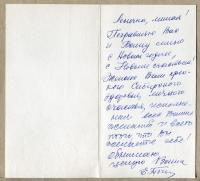 Леночка, милая!
Поздравляю Вас
и Вашу семью
с Новым годом,
с Новым счастьем!
Желаю Вам креп-
кого Сибирского
здоровья, личного
счастья, исполне-
ния всех Ваших
желаний и всего
того, что Вы
желаете себе!
Обнимаю,
целую Ваша